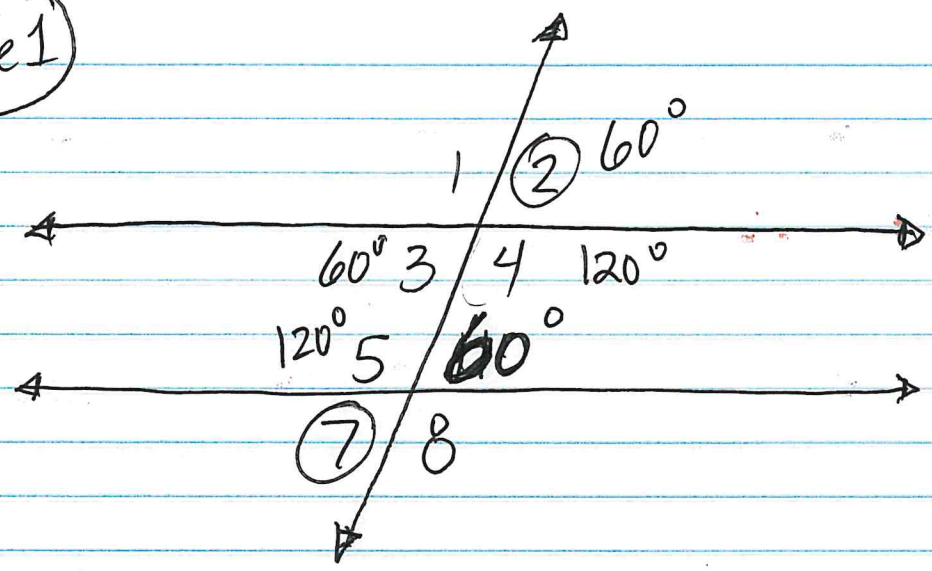 e1
1 2 60°
60° 3 4 120°
120° 5 60°
7 8